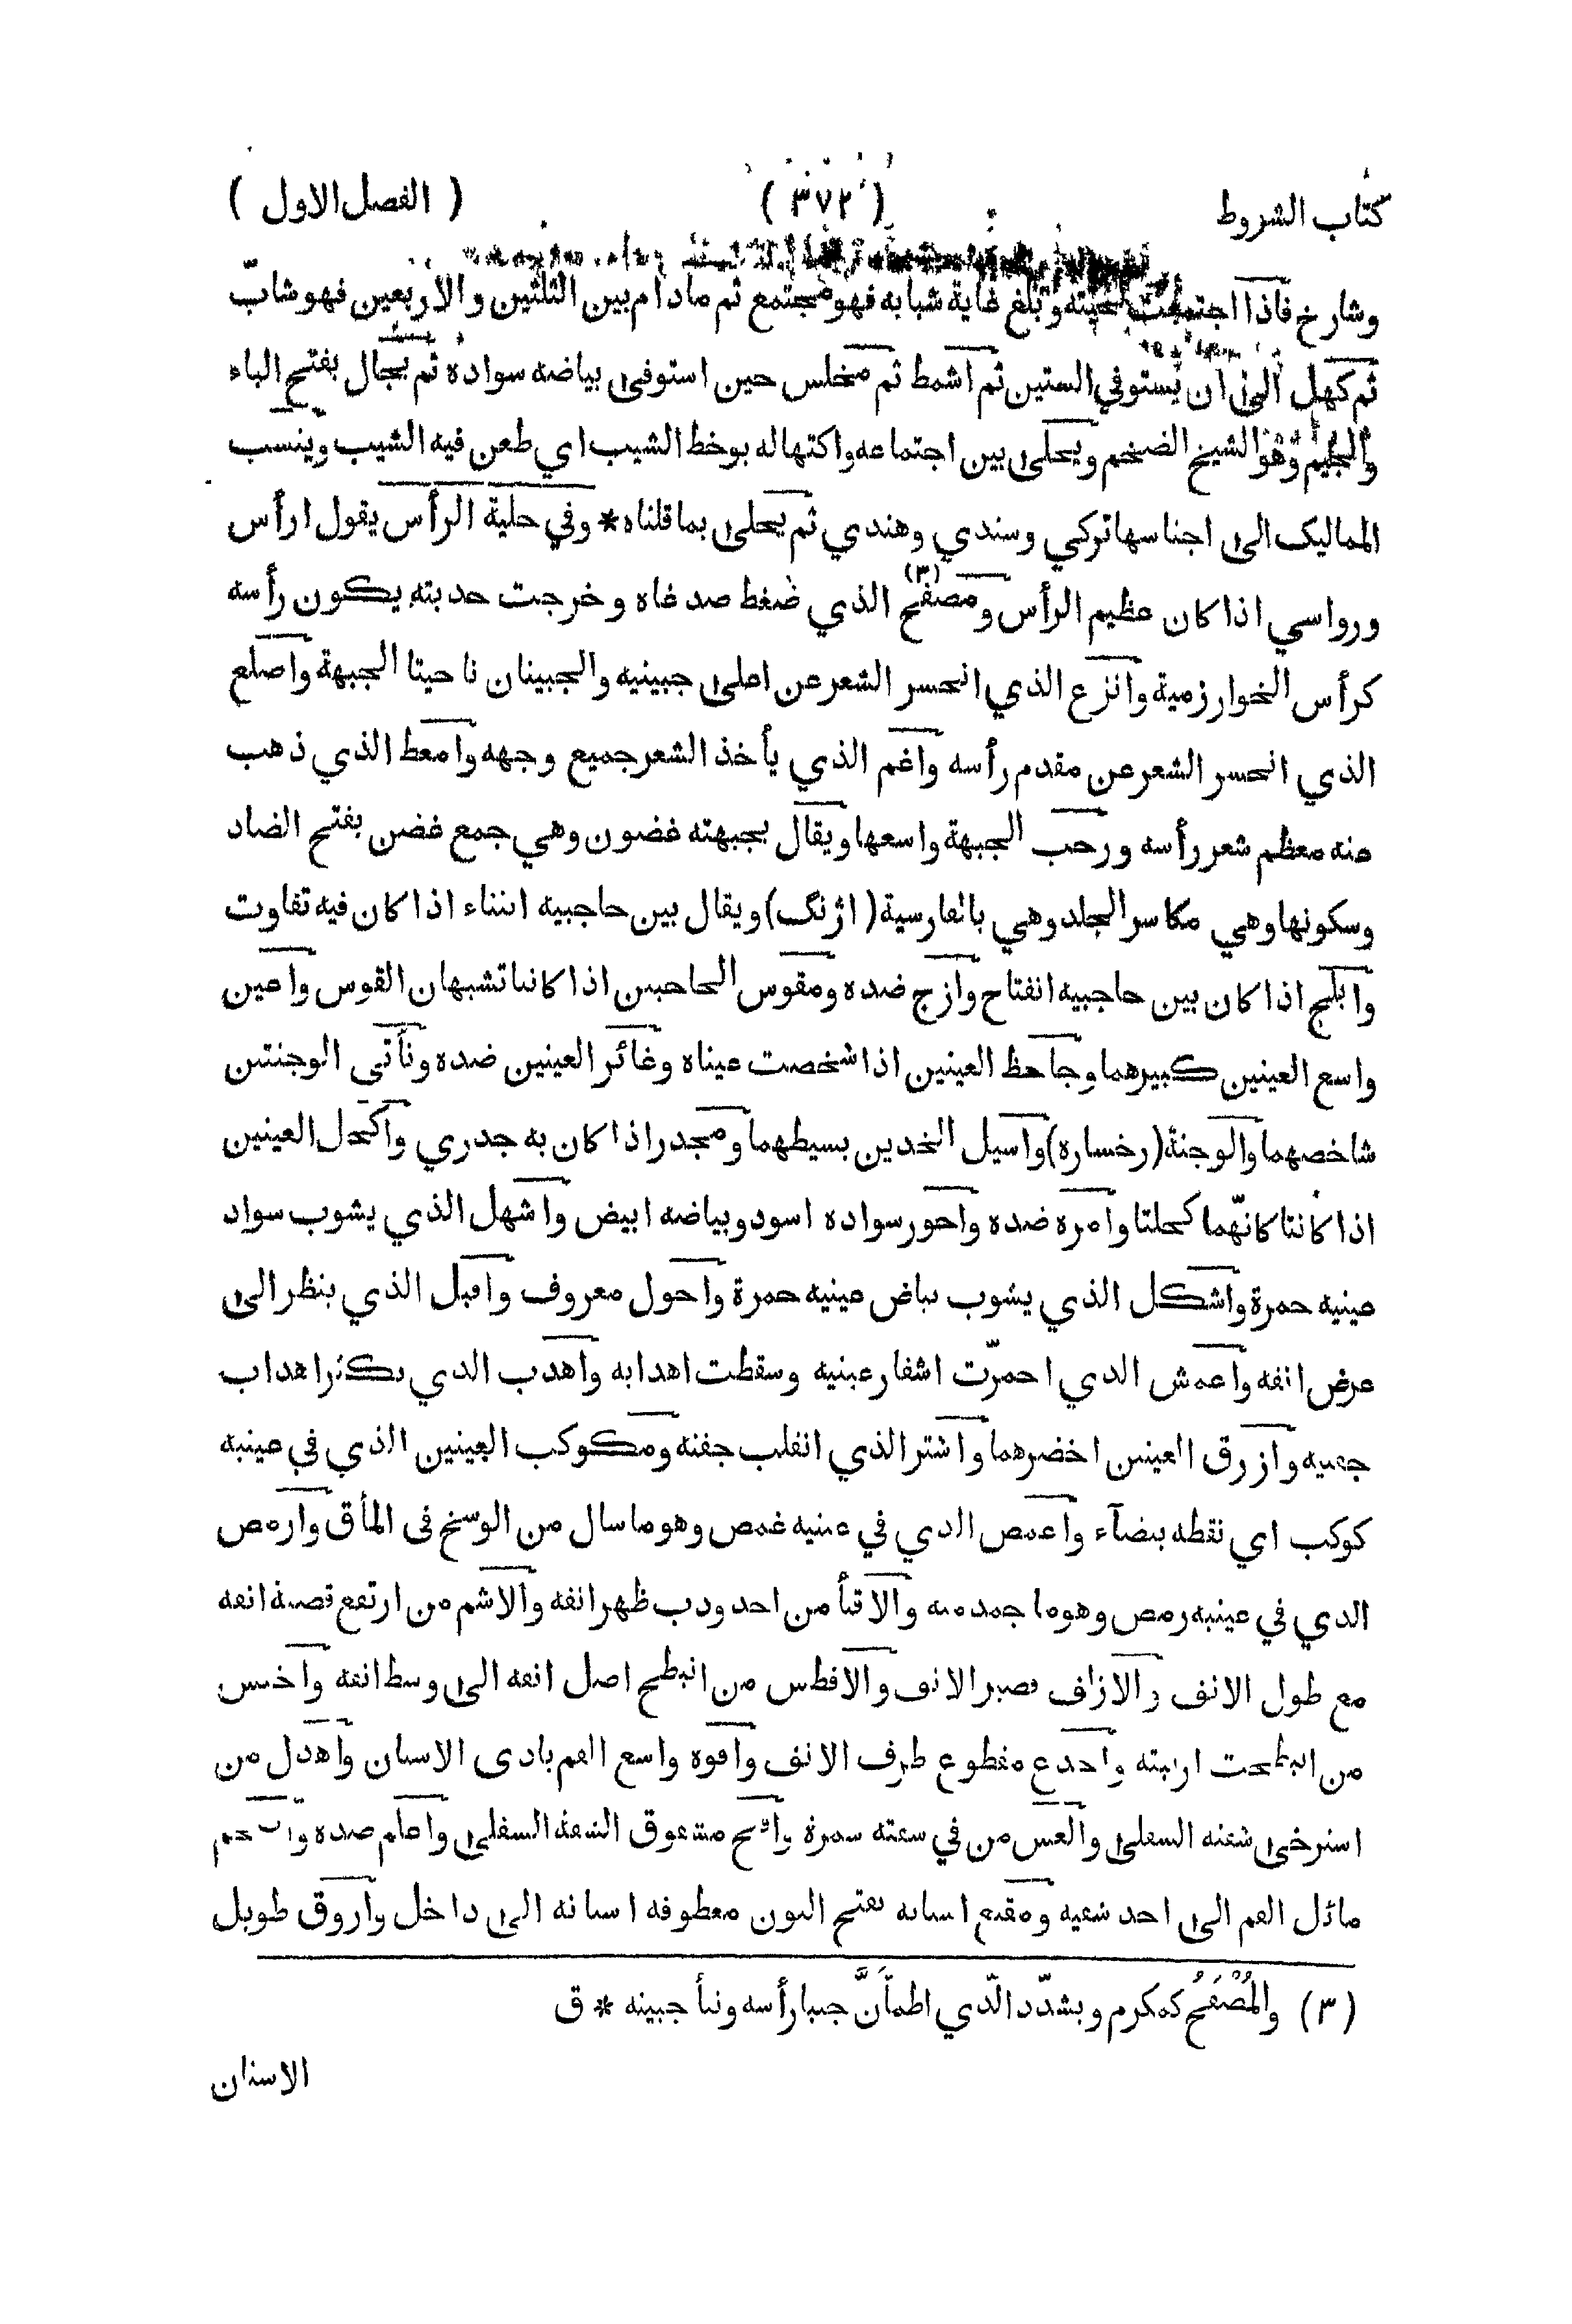 كتاب الشروط ( ٣٧٢ ) ( الفصل الاول )
وشارخ فاذا اجتمعت لحيته وتبلغ غاية شبابه فهو مجتمع ثم مادام بين الثلثين والاربعين فهو شابّ
ثم كهل الى ان يستوفي الستين ثم اشمط ثم مخلس حين استوفى بياضه سواده ثم بجال بفتح الباء
والجيم وهو الشيخ الضخم ويحلى بين اجتماعه واكتهاله بوخط الشيب اي طعن فيه الشيب وينسب
المماليك الى اجناسها تركي وسندي وهندي ثم يحلى بما قلناه * وفي حلية الرأس يقول ارأس
ورواسي اذا كان عظيم الرأس ومصفح (٣) الذي ضغط صدغاه وخرجت حدبته يكون رأسه
كرأس الخوارزمية وانزع الذي انحسر الشعر عن اعلى جبينيه والجبينان ناحيتا الجبهة واصلع
الذي انحسر الشعر عن مقدم رأسه واغم الذي يأخذ الشعر جميع وجهه وامعط الذي ذهب
منه معظم شعر رأسه ورحب الجبهة واسعها ويقال بجبهته غضون وهي جمع غضن بفتح الضاد
وسكونها وهي مكاسر الجلد وهي بالفارسية ( اژنگ ) ويقال بين حاجبيه انثناء اذا كان فيه تفاوت
وابلج اذا كان بين حاجبيه انفتاح وازج ضده ومقوس الحاجبين اذا كانتا تشبهان القوس واعين
واسع العينين كبيرهما وجاحظ العينين اذا شخصت عيناه وغائر العينين ضده وناتى الوجنتين
شاخصهما والوجنة ( رخساره ) واسيل الخدين بسيطهما ومجدر اذا كان به جدري واكحل العينين
اذا كانتا كانّهما كحلتا وامره ضده واحور سواده اسود وبياضه ابيض واشهل الذي يشوب سواد
عينيه حمرة واشكل الذي يشوب بياض عينيه حمرة واحول معروف واقبل الذي ينظر الى
عرض انفه واعمش الذي احمرّت اشفار عينيه وسقطت اهدابه واهدب الذي يكثر اهداب
جفنيه وازرق العينين اخضرهما واشتر الذي انقلب جفنه ومكوكب العينين الذي في عينيه
كوكب اي نقطه بيضآء واغمص الذي في عينيه غمص وهو ما سال من الوسخ فى المأق وارمص
الذي في عينيه رمص وهو ما جمد منه والاقنأ من احدودب ظهر انفه والاشم من ارتفع قصبة انفه
مع طول الانف والازلف قصير الانف والافطس من انبطح اصل انفه الى وسط انفه واخنس
من انبطحت ارنبته واجدع مقطوع طرف الانف وافوه واسع الفم بادى الاسنان واهدل من
استرخى شفته السفلى والعس من في شفته سمرة وافلح مشقوق الشفة السفلى واعلم ضده
مائل الفم الى احد شقيه ومقنع اسنانه بفتح النون معطوفة اسنانه الى داخل واروق طويل
(٣) والمُصْفَح كمكرم ويشدّد الّذي اطمأنَّ جنبا رأسه ونتأ جبينه * ق
الاسنان